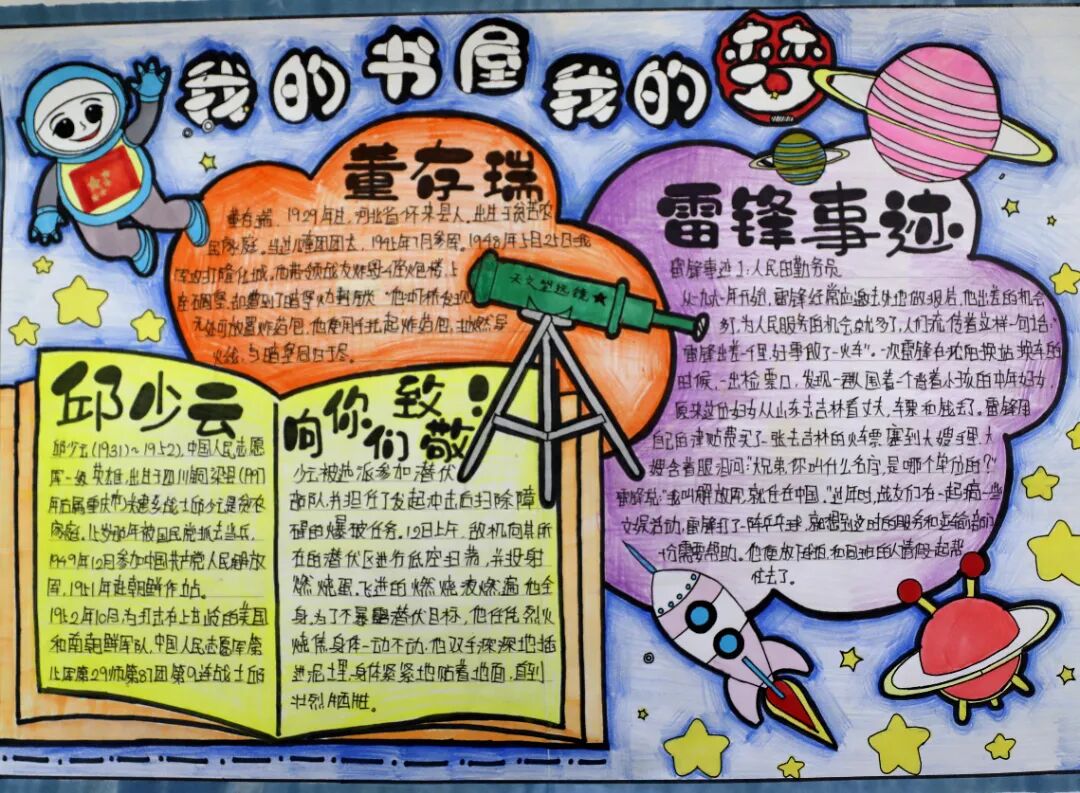 我的书屋我的梦
董存瑞
董存瑞，1929年生，河北省怀来县人，出生于贫苦农
民家庭。当过儿童团团长，1945年7月参军，1948年5月25日我
军攻打隆化城，他带领战友炸毁4座炮楼，
无处可放置炸药包，他使用手托起炸药包，拉燃导
火线，与暗堡同归于尽。
天文望远镜
雷锋事迹
雷锋事迹1：人民的勤务员
从一九六一年开始，雷锋经常应邀去外地做报告，他出差的机会
多了，为人民服务的机会也就多了，人们流传着这样一句话：
雷锋出差一千里，好事做了一火车”。一次雷锋在沈阳换站换车的
时候，一出检票口，发现一群人围着一个背着小孩的中年妇女，
原来这位妇女从山东去吉林看丈夫，车票和钱丢了。雷锋用
自己的津贴费买了一张去吉林的火车票塞到大嫂手里，大
嫂含着眼泪问：“大兄弟，你叫什么名字，是哪个单位的？”
雷锋说：“我叫解放军，就住在中国。”过年时，战友们在一起搞一些
文娱活动，雷锋打了一阵乒乓球，就想到这时的服务和运输部门
帮助。他便放下
去了。
邱少云
邱少云（1931）~1952），中国人民志愿
军一级英雄，出生于四川铜梁县（1997
家庭。
1949年12月参加中国共产党人民解放
军，1951年赴朝鲜作战。
1952年10月，为打击在上甘岭的美国
和南朝鲜军队，中国人民志愿军第
15军第29师第87团第9连战士邱
向你们致敬！
少云被选派参加潜伏
部队，并担任了发起冲击后扫除障
碍的爆破任务。12日上午，敌机向其所
在的潜伏区进行低空扫荡，并投射
燃烧弹，飞进的燃烧液燃遍他全
身，为了不暴露潜伏目标，他任凭烈火
烧焦身体一动不动，他双手深深地插
进泥土里，身体紧紧地贴着地面，直到
壮烈牺牲。